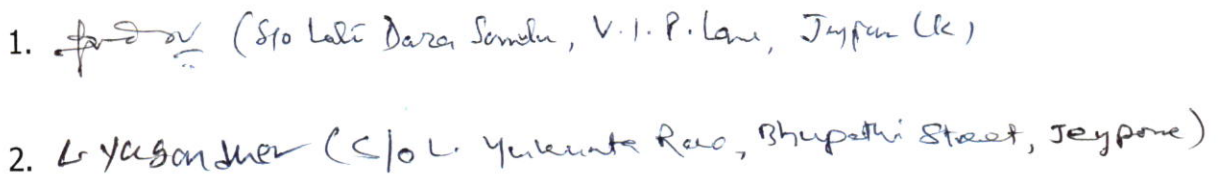 1. (S/o Late Dara Samulu, V.I.P. Lane, Jeypore (K)
2. L. Yugandher (S/o L. Rao, Bhupathi Street, Jeypore)